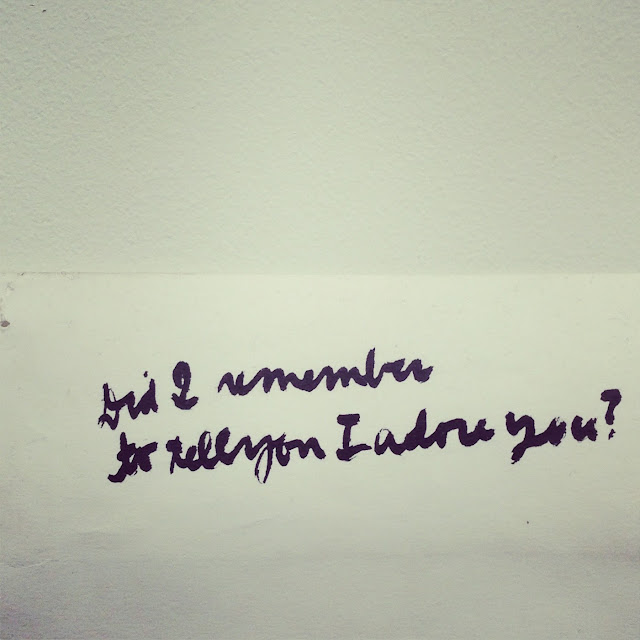 Did I remember
to tell you I adore you?